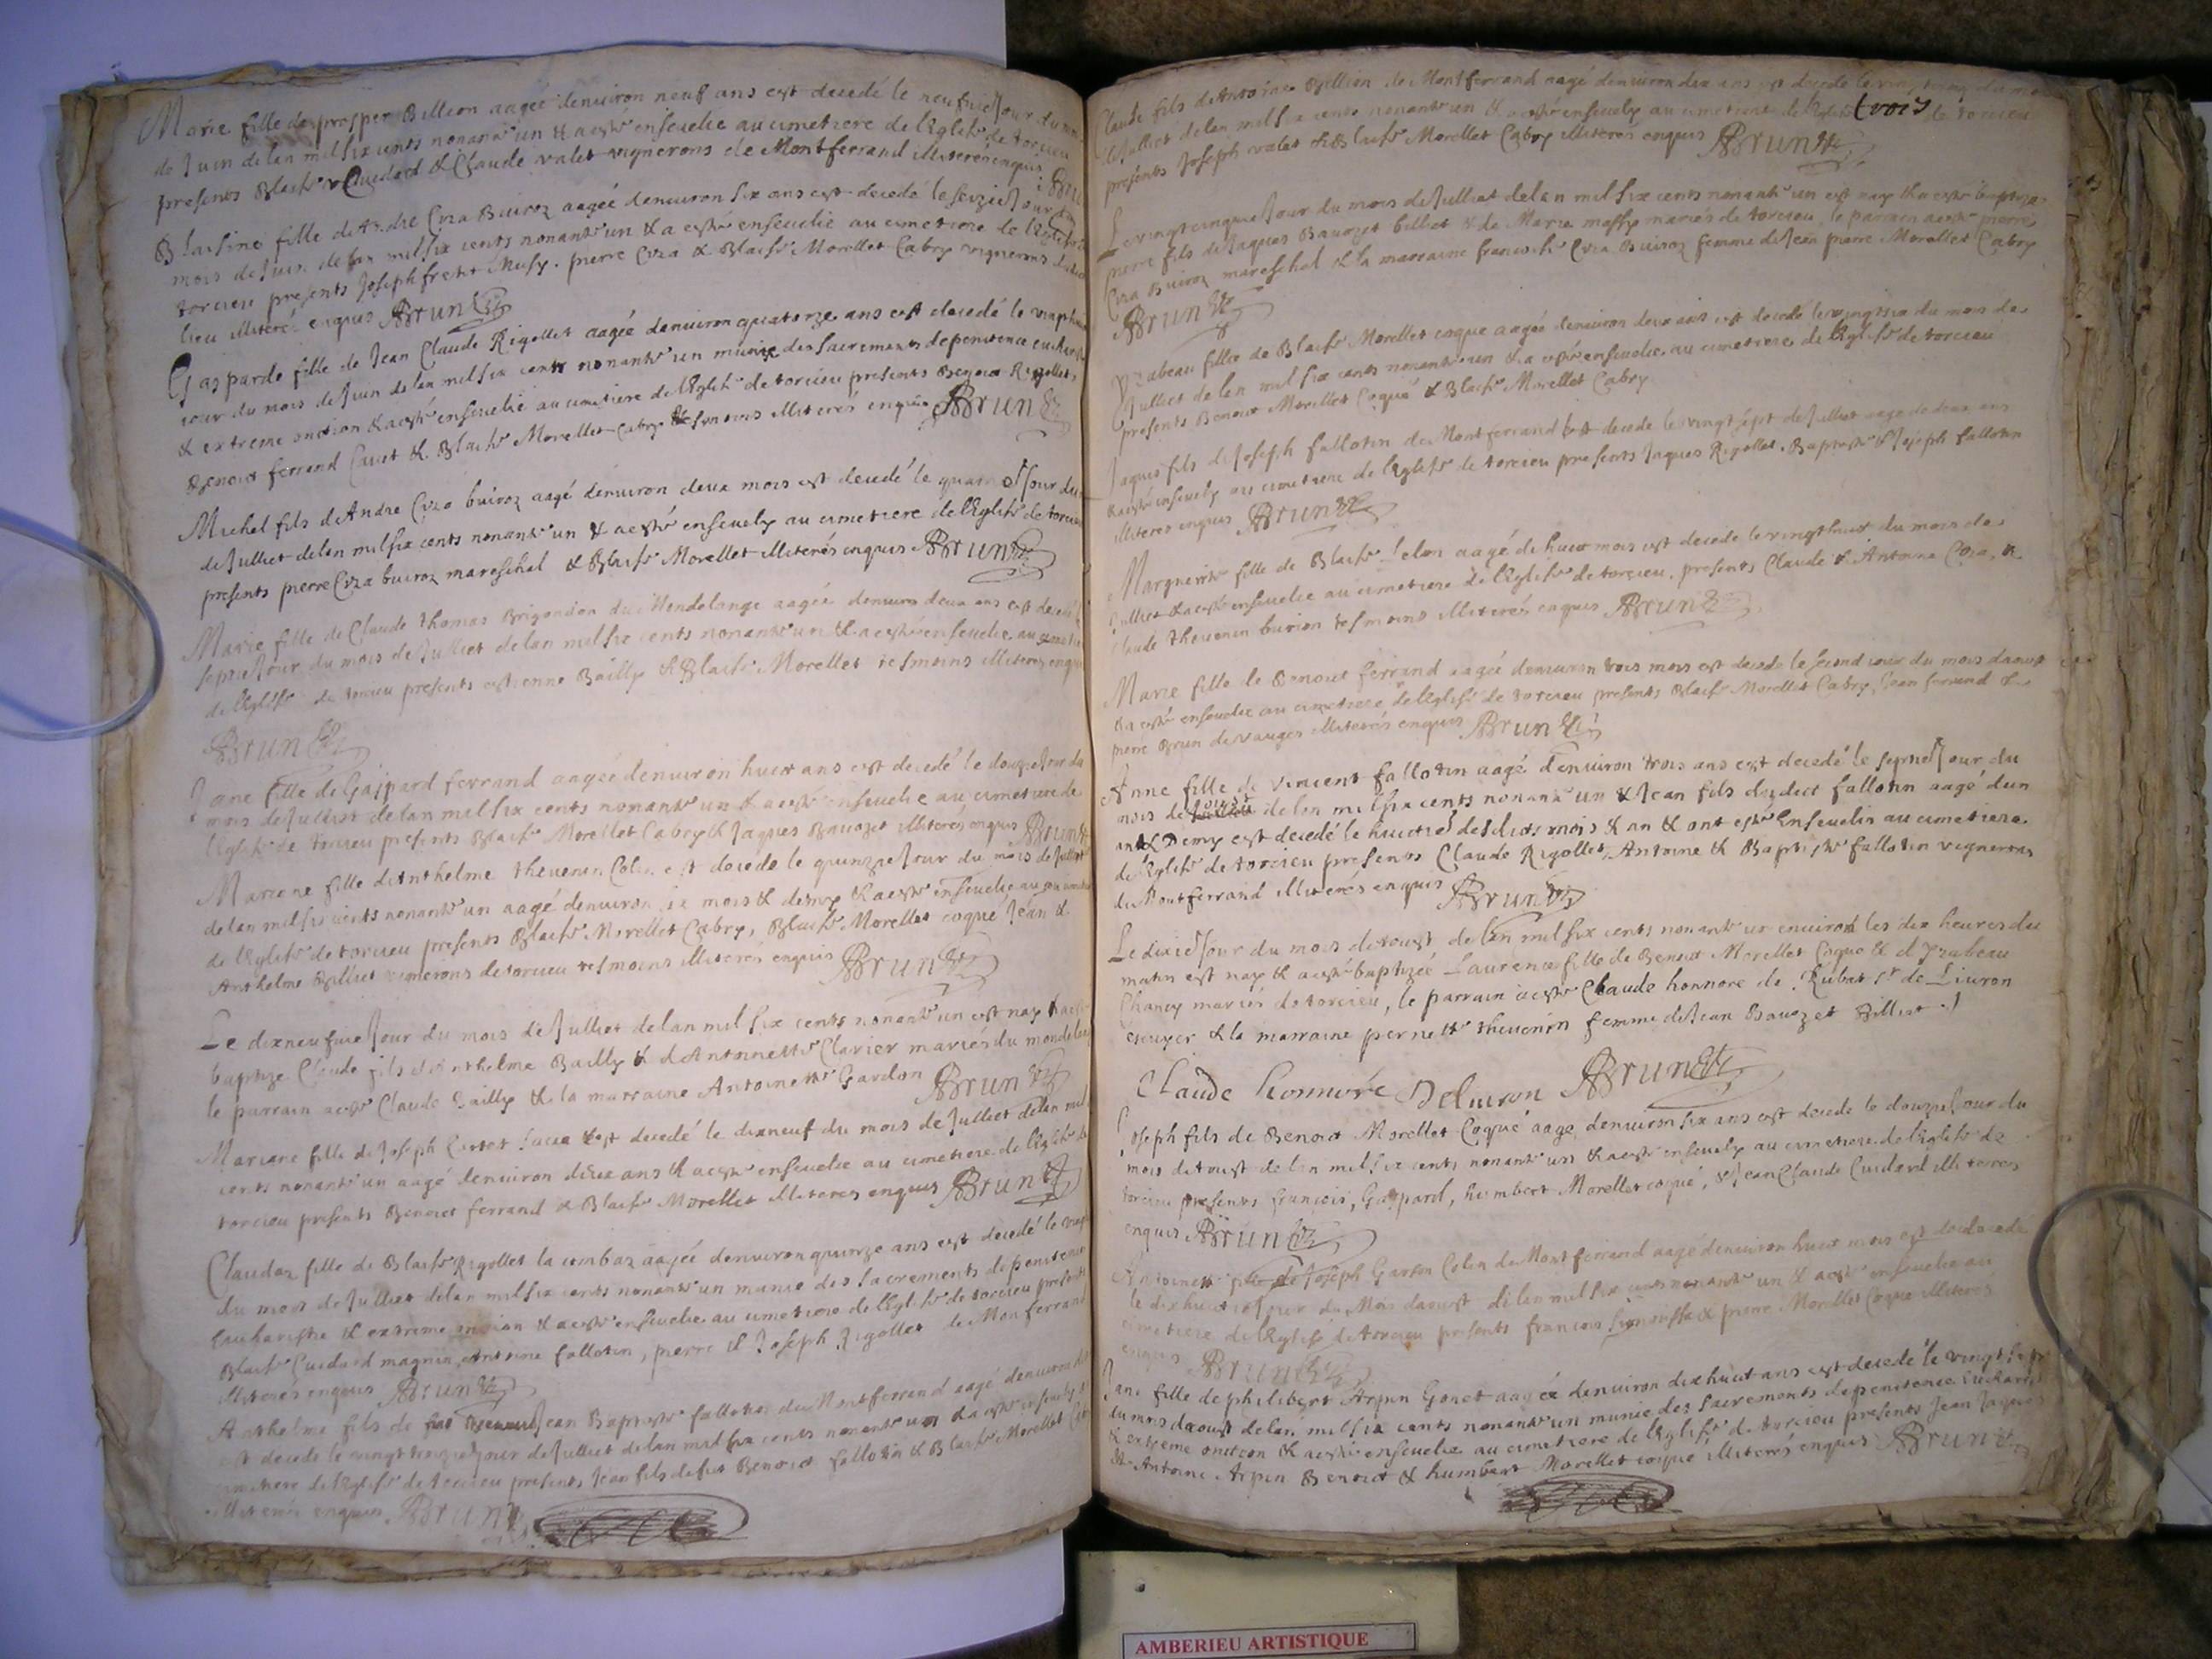 Marie fille de prosper Billion aagée denviron neuf ans est decedé le neufvie Jour du
de Juin de lan mil six cents nonante un & a esté ensevelie au cimetiere de l'Eglise de torcieu
presents Blaise Cuidard & Claude valet vignerons de Montferrand illiterés enquis
Blaisine fille de Andre Cyza Buiroz aagée denviron six ans est decedé le seizie Jour du
mois de Juin de lan mil six cents nonante un & a esté ensevelie au cimetiere de l'Eglise
torcieu presents Joseph . pierre Cyza & Blaise Morellet Cabry vignerons dudit
lieu illiterés enquis Brun
Gasparde fille de Jean Claude Rigollet aagée denviron quatorze ans est decedé le vingt
jour du mois de Juin de lan mil six cents nonante un munie des sacrements de penitence
& extreme onction & a esté ensevelie au cimetiere de l'Eglise de torcieu presents Benoit Rigollet
Benoit ferrand Cavet & Blaise Morellet Cabry tesmoins illiterés enquis Brun
Michel fils de Andre Cyza buiroz aagé denviron deux mois est decedé le quatrie Jour du
de Julliet de lan mil six cents nonante un & a esté ensevely au cimetiere de l'Eglise de torcieu
presents pierre Cyza buiroz mareschal & Blaise Morellet illiterés enquis Brun
Marie fille de Claude thomas Brigondion du Mondelange aagée denviron deux ans est decedé
septie Jour du mois de Julliet de lan mil six cents nonante un & a esté ensevelie au cimetiere
de l'Eglise de torcieu presents estienne Bailly & Blaise Morellet tesmoins illiterés enquis
Brun
Jane fille de Gaspard ferrand aagée denviron huict ans est decedé le douzie Jour du
mois de Julliet de lan mil six cents nonante un & a esté ensevelie au cimetiere de
l'Eglise de torcieu presents Blaise Morellet Cabry & Jaques Bavozet illiterés enquis Brun
Mariane fille d'Anthelme thevenin Colin est decedé le quinzie Jour du mois de Julliet
de lan mil six cents nonante un aagé denviron mois & demy & a esté ensevelie au cimetiere
de l'Eglise de torcieu presents Blaise Morellet Cabry, Blaise Morellet coqué Jean &
Anthelme Billiet vignerons de torcieu tesmoins illiterés enquis Brun
Le dixneufvie Jour du mois de Julliet de lan mil six cents nonante un est nay & a esté
baptize Claude fils d'Anthelme Bailly & d'Antoinette Clavier mariés du mondelange
le parrain a esté Claude Bailly & la marraine Antoinette Gardon Brun
Mariane fille de Joseph est decedé le dixneuf du mois de Julliet de lan mil
cents nonante un aagé denviron deux ans & a esté ensevelie au cimetiere de l'Eglise de
torcieu presents Benoit ferrand & Blaise Morellet illiterés enquis Brun
Claudaz fille de Blaise Rigollet la combaz aagée denviron quinze ans est decedé le vingt
du mois de Julliet de lan mil six cents nonante un munie des sacrements de penitence
Eucharistie & extreme onction & a esté ensevelie au cimetiere de l'Eglise de torcieu presents
Blaise Cuidard magnin, Antoine fallotin, pierre & Joseph Rigollet de Montferrand
illiterés enquis Brun
Anthelme fils de Jean Baptiste fallotin de Montferrand aagé denviron
est decedé le vingt Jour de Julliet de lan mil six cents nonante un & a esté ensevely
cimetiere de l'Eglise de torcieu presents Jean fils de fut Benoit fallotin & Blaise Morellet
illiterés enquis Brun
Claude fils de Antoine Billion de Montferrand aagé denviron dix ans est decedé le vingt
de Julliet de lan mil six cents nonante un & a esté ensevely au cimetiere de l'Eglise trois de torcieu
presents Joseph valet & Blaise Morellet Cabry illiterés enquis Brun
Le vingtcinquie Jour du mois de Julliet de lan mil six cents nonante un est nay & a esté baptizé
pierre fils de Jaques Bavozet billiet & de Marie massy mariés de torcieu, le parrain a esté pierre
Cyza Buiroz mareschal & la marraine francoise Cyza Buiroz femme de Jean pierre Morellet Cabry
Brun
Yzabeau fille de Blaise Morellet coque aagée denviron deux ans est decedé le vingtsix du mois de
Julliet de lan mil six cents nonante un & a esté ensevelie au cimetiere de l'Eglise de torcieu
presents Benoit Morellet Coqué & Blaise Morellet Cabry
Jaques fils de Joseph fallotin de Montferrand est decedé le vingt sept de Julliet aagé de deux ans
& a esté ensevely au cimetiere de l'Eglise de torcieu presents Jaques Rigollet, Baptiste & Joseph fallotin
illiteres enquis Brun
Marguerite fille de Blaise aagé de huict mois est decedé le vingthuit du mois de
Julliet & a esté ensevelie au cimetiere de l'Eglise de torcieu, presents Claude & Antoine Cyza, &
Claude thevenin burion tesmoins illiterés enquis Brun
Marie fille de Benoit ferrand aagée denviron trois mois est decedé le second jour du mois daoust
& a esté ensevelie au cimetiere de l'Eglise de torcieu presents Blaise Morellet Cabry, Jean ferrand &
pierre Brun de vauges illiterés enquis Brun
Anne fille de vincent fallotin aagé denviron trois ans est decedé le septie Jour du
mois de aoust de lan mil six cents nonante un & Jean fils dudict fallotin aagé dun
an & Demy est decedé le huictie desdicts mois & an & ont esté Ensevelis au cimetiere
de l'Eglise de torcieu presents Claude Rigollet, Antoine & Baptiste fallotin vignerons
de Montferrand illiterés enquis Brun
Le dixie Jour du mois de aoust de lan mil six cents nonante un environ les dix heures du
matin est nay & a esté baptizée Laurence fille de Benoit Morellet Coque & d'Yzabeau
Chancy mariés de torcieu, le parrain a esté Claude honnore de Rubat sr de Livron
escuyer & la marraine pernette thevenin femme de Jean Bavozet Billiet
Claude honnoré Delivron Brun
Joseph fils de Benoit Morellet Coqué aagé denviron six ans est decedé le douzie Jour du
mois de aoust de lan mil six cents nonante un & a esté ensevely au cimetiere de l'Eglise de
torcieu presents françois, Gaspard, humbert Morellet coqué, & Jean Claude Cuidard illiterés
enquis Brun
Antoinette fille de Joseph Colin de Montferrand aagé denviron huict mois est decedé
le dixhuictie Jour du Mois daoust de lan mil six cents nonante un & a esté ensevelie au
cimetiere de l'Eglise de torcieu presents francois & pierre Morellet Coque illiterés
enquis Brun
Jane fille de philibert Arpin Gonet aagée denviron dixhuict ans est decedé le vingt sept
du mois daoust de lan mil six cents nonante un munie des sacrements de penitence Eucharistie
& extreme onction & a esté ensevelie au cimetiere de l'Eglise de torcieu presents Jean Jaques
& Antoine Arpin Benoit & humbert Morellet coqué illiterés enquis Brun
AMBERIEU ARTISTIQUE